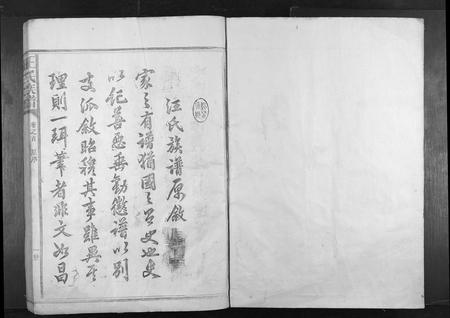 汪氏族譜原敘
家之有譜猶國之有史也史
以紀善惡垂勸懲譜以別
支派敘昭穆其事雖異其
理則一珥筆者非文如昌
汪氏族譜
卷之首